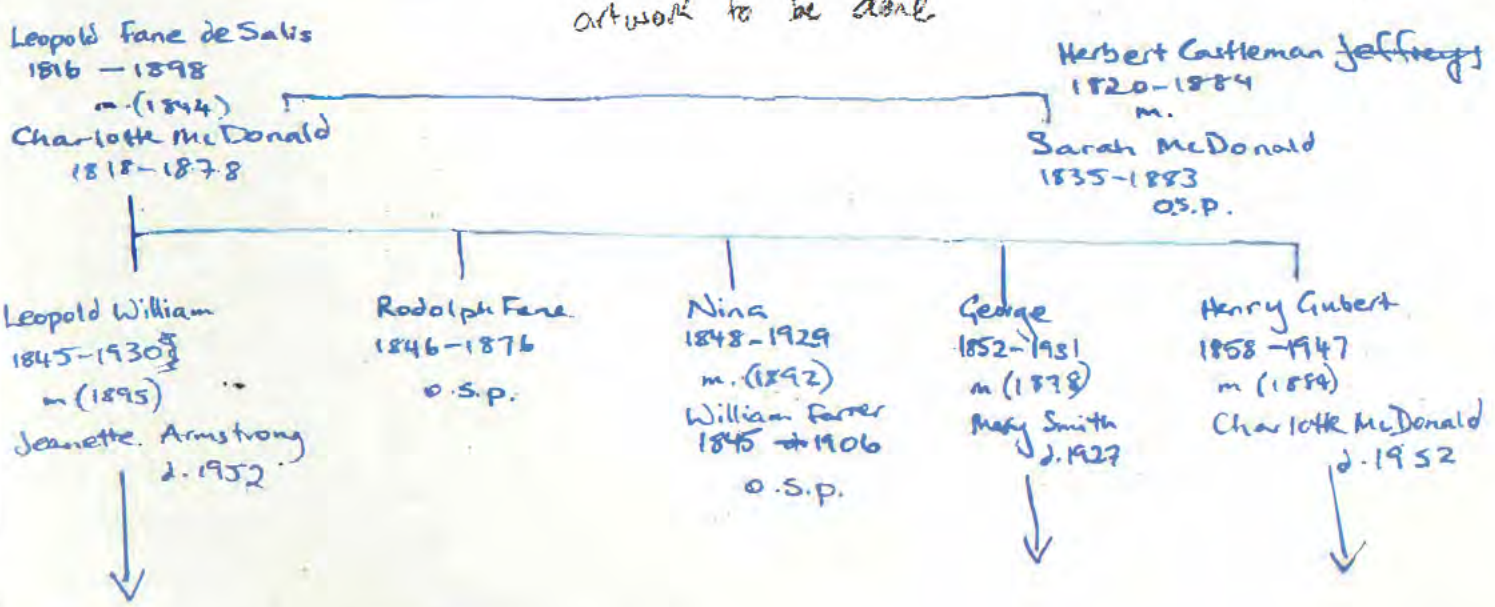 artwork to be done
Leopold Fane de Salis
1816 – 1898
m. (1844)
Charlotte McDonald
1818–1878
Herbert Castleman Jeffreys
1820–1884
m.
Sarah McDonald
1835–1883
O.S.P.
Leopold William
1845–1930
m (1895)
Jeanette Armstrong
d. 1952
Rodolph Fane
1846–1876
o.s.p.
Nina
1848–1929
m. (1892)
William Farrer
1845 1906
o.s.p.
George
1852–1931
m (1878)
Mary Smith
d. 1927
Henry Gubert
1858–1947
m (1884)
Charlotte McDonald
d. 1952